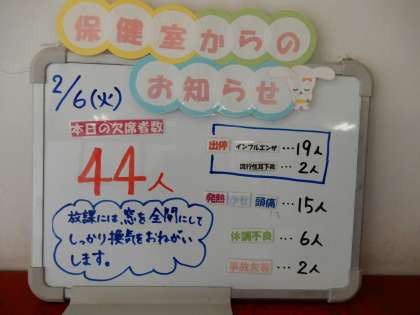 保健室からの
お知らせ
2/6(火)
本日の欠席者数
44人
放課には、窓を全開にして
しっかり換気をおねがい
します。
出停 インフルエンザ …19人
流行性耳下炎 …2人
発熱 かぜ 頭痛 …15人
体調不良 …6人
事故欠等 …2人